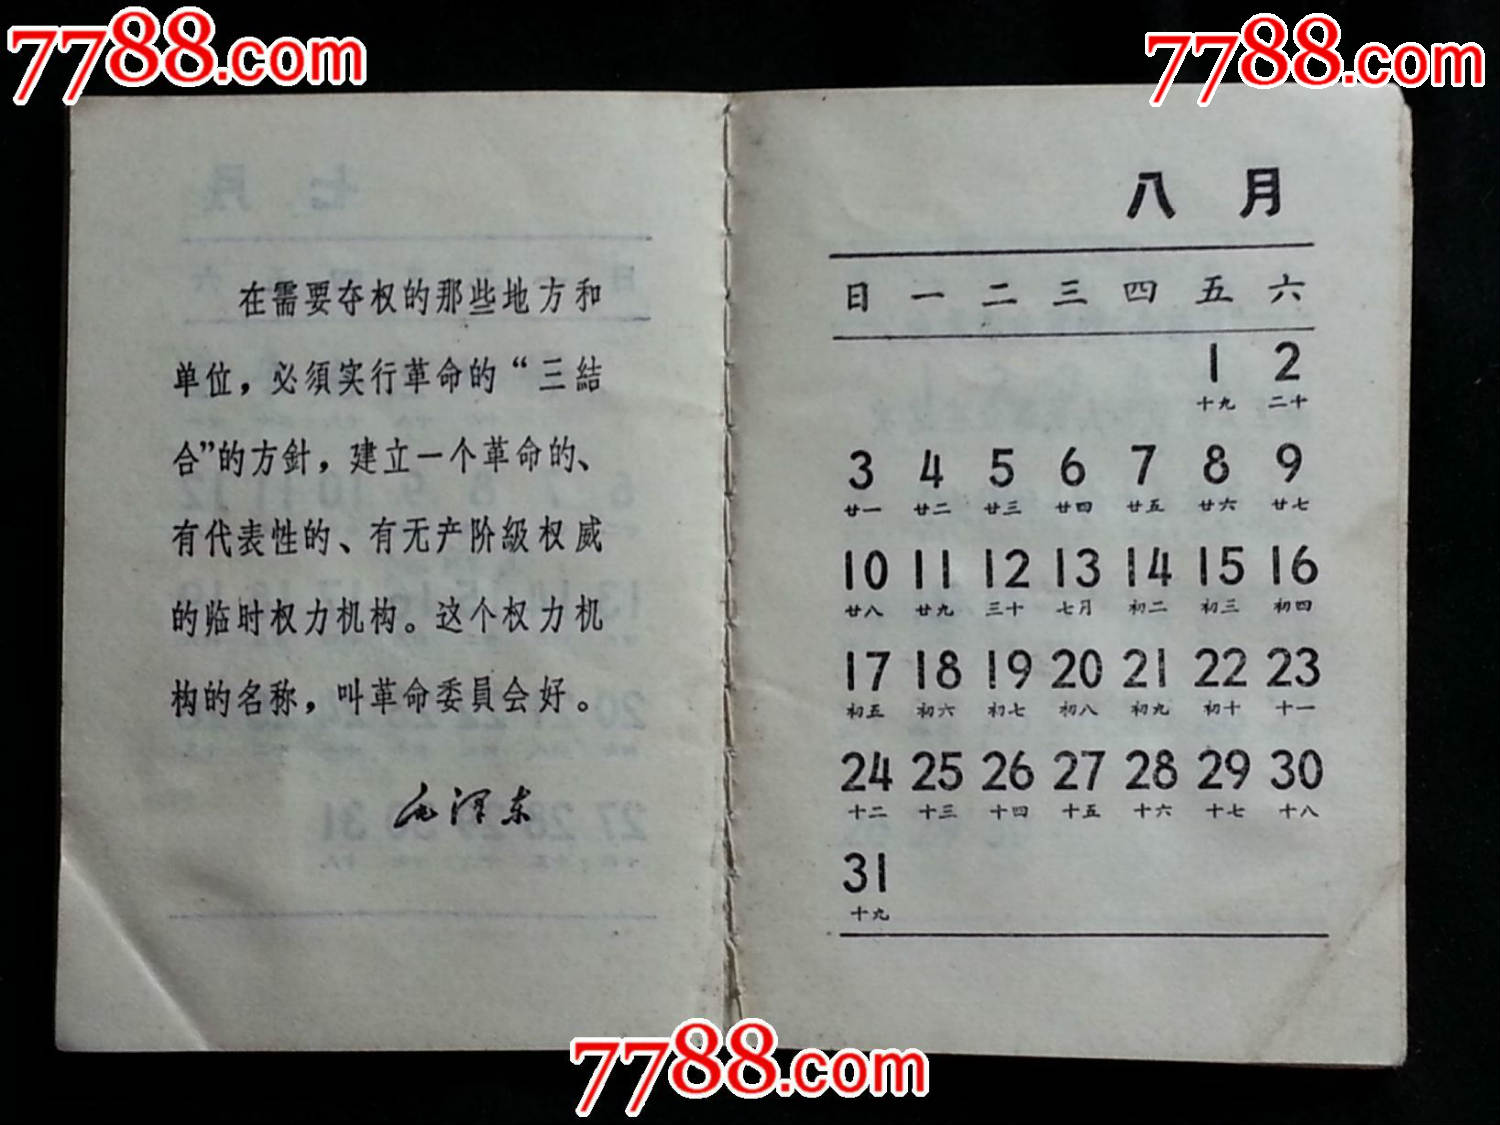 7788.com
7788.com
在需要夺权的那些地方和
单位，必須实行革命的“三結
合”的方針，建立一个革命的、
有代表性的、有无产阶級权威
的临时权力机构。这个权力机
构的名称，叫革命委員会好。
毛泽东
八月
日 一 二 三 四 五 六
1 2
十九 二十
3 4 5 6 7 8 9
廿一 廿二 廿三 廿四 廿五 廿六 廿七
10 11 12 13 14 15 16
廿八 廿九 三十 七月 初二 初三 初四
17 18 19 20 21 22 23
初五 初六 初七 初八 初九 初十 十一
24 25 26 27 28 29 30
十二 十三 十四 十五 十六 十七 十八
31
十九
7788.com